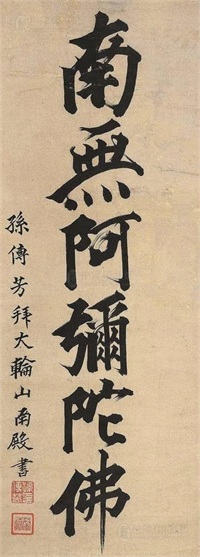 南無阿彌陀佛
孫傳芳拜大輪山南殿書